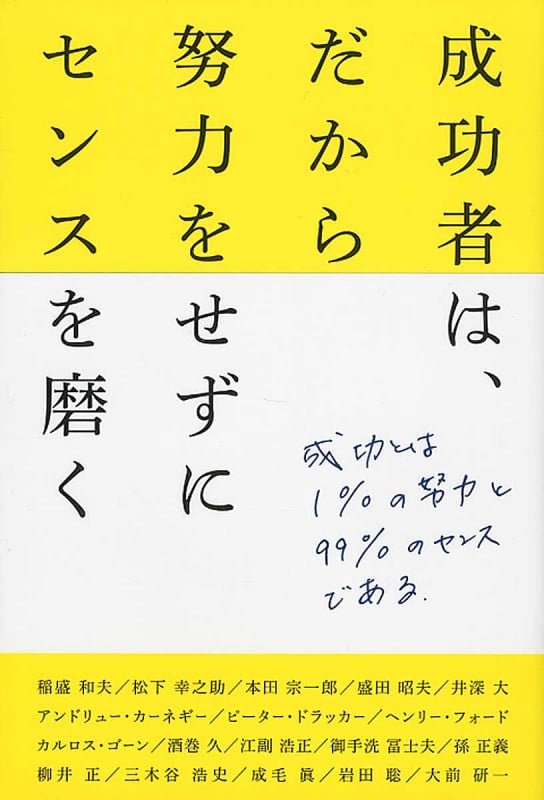 成功者は、
だから
努力をせずに
センスを磨く
成功とは
1%の努力と
99%のセンス
である.
稲盛 和夫／松下 幸之助／本田 宗一郎／盛田 昭夫／井深 大
アンドリュー・カーネギー／ピーター・ドラッカー／ヘンリー・フォード
カルロス・ゴーン／酒巻 久／江副 浩正／御手洗 冨士夫／孫 正義
柳井 正／三木谷 浩史／成毛 眞／岩田 聡／大前 研一